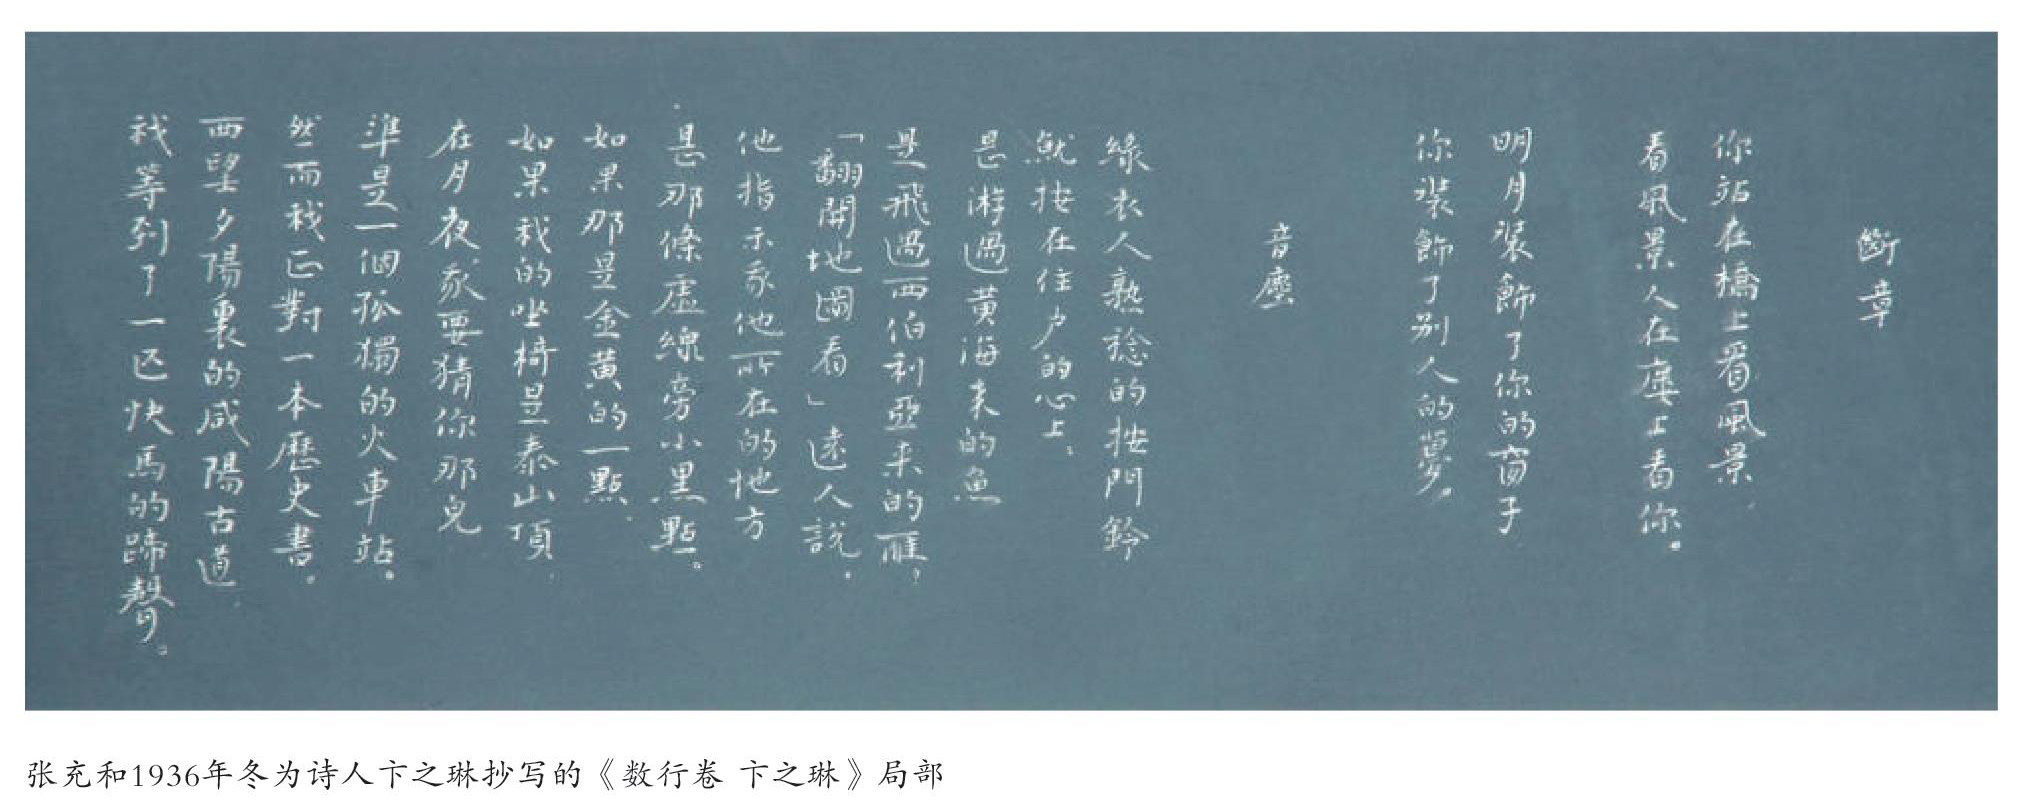 斷章
你站在橋上看風景，
看風景人在樓上看你。
明月裝飾了你的窗子，
你裝飾了别人的夢。
音塵
綠衣人熟稔的按門鈴
就按在住户的心上：
是游過黄海来的魚
是飛過西伯利亞来的雁？
「翻開地圖看」遠人說。
他指示我他所在的地方
是那條虚線旁小黑點。
如果那是金黄的一點，
如果我的坐椅是泰山頂，
在月夜，我要猜你那兒
準是一個孤獨的火車站。
然而我正對一本歷史書。
西望夕陽裏的咸陽古道，
我等到了一匹快馬的蹄聲。
张充和1936年冬为诗人卞之琳抄写的《数行卷 卞之琳》局部